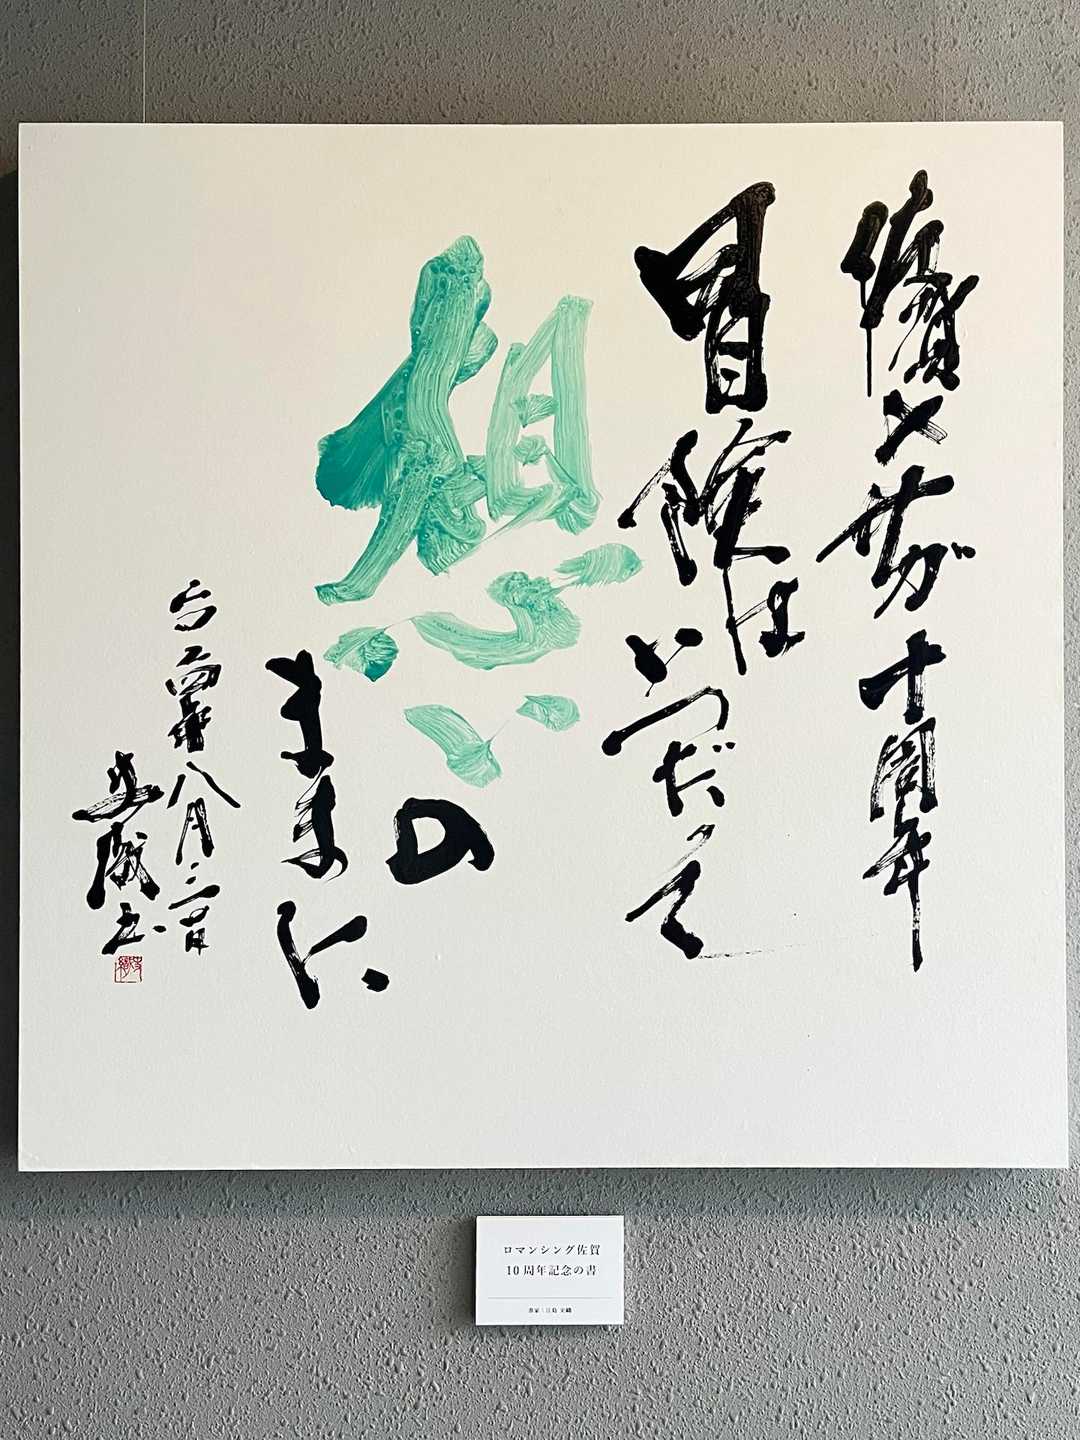 佐賀×サガ十周年
冒険は
いつだって
想いの
ままに
八月三日
史織書
ロマンシング佐賀
10周年記念の書
書家：江島 史織